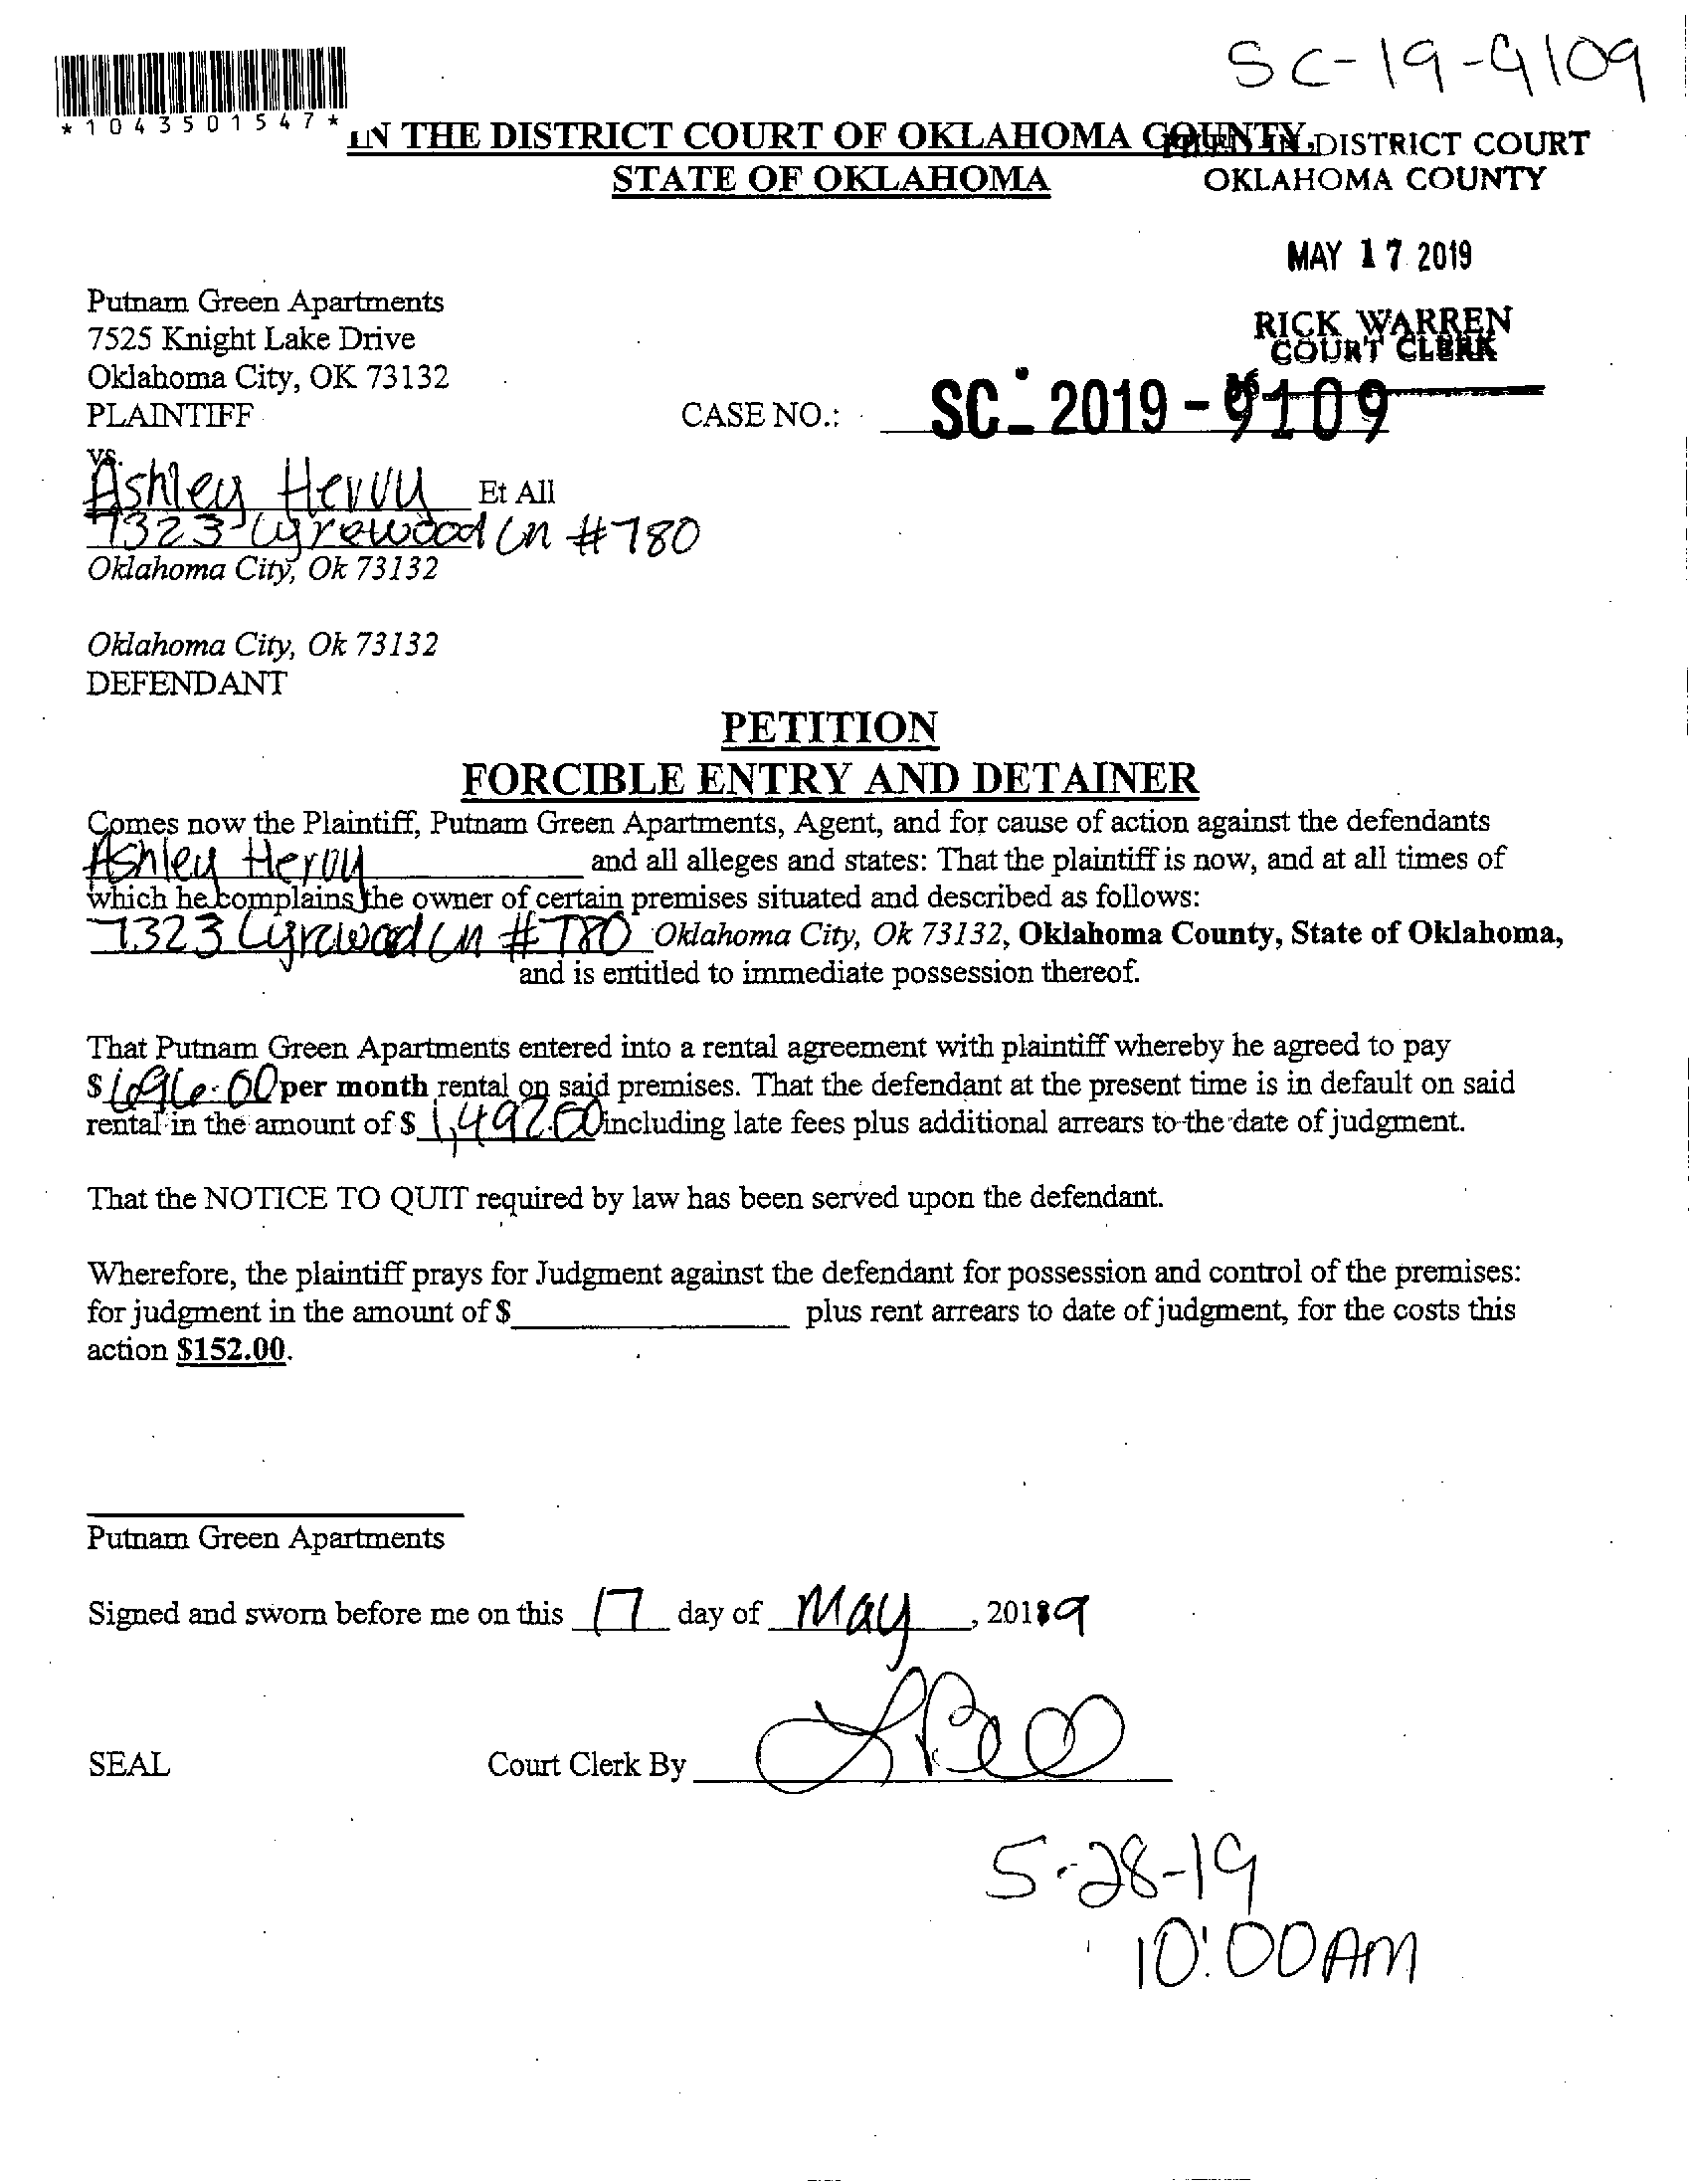 SC-19-9109
*1043501547*
IN THE DISTRICT COURT OF OKLAHOMA COUNTY,
STATE OF OKLAHOMA
DISTRICT COURT
OKLAHOMA COUNTY
MAY 17 2019
RICK WARREN
COURT CLERK
Putnam Green Apartments
7525 Knight Lake Drive
Oklahoma City, OK 73132
PLAINTIFF
CASE NO.: SC-2019-9109
vs.
Ashley Hervy Et All
7323 Lyrewood Ln #780
Oklahoma City, Ok 73132
Oklahoma City, Ok 73132
DEFENDANT
PETITION
FORCIBLE ENTRY AND DETAINER
Comes now the Plaintiff, Putnam Green Apartments, Agent, and for cause of action against the defendants
Ashley Hervy and all alleges and states: That the plaintiff is now, and at all times of
which he complains the owner of certain premises situated and described as follows:
7323 Lyrewood Ln #780 Oklahoma City, Ok 73132, Oklahoma County, State of Oklahoma,
and is entitled to immediate possession thereof.
That Putnam Green Apartments entered into a rental agreement with plaintiff whereby he agreed to pay
$ 696.00 per month rental on said premises. That the defendant at the present time is in default on said
rental in the amount of $ 1,492.00 including late fees plus additional arrears to the date of judgment.
That the NOTICE TO QUIT required by law has been served upon the defendant.
Wherefore, the plaintiff prays for Judgment against the defendant for possession and control of the premises:
for judgment in the amount of $ plus rent arrears to date of judgment, for the costs this
action $152.00.
Putnam Green Apartments
Signed and sworn before me on this 17 day of May, 2019
SEAL Court Clerk By
5-28-19
10:00 AM